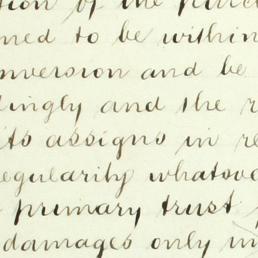 tion of the
med to be within
nversion and be
dingly and the
its assigns in
regularity whatsoev
primary trust
damages only in